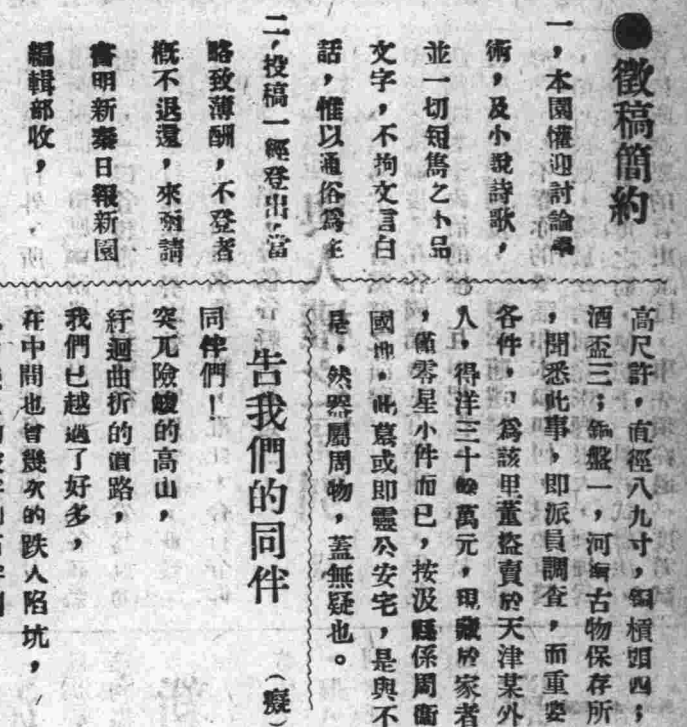 ●徵稿簡約
一，本園懽迎討論學
術，及小說詩歌，
並一切短雋之小品
文字，不拘文言白
話，惟以通俗爲主
二，投稿一經登出，當
略致薄酬，不登者
槪不退還，來稿請
書明新秦日報新園
編輯部收，
高尺許，直徑八九寸，銅槓頭四；
酒盃三；銅盤一，河南古物保存所
，聞悉此事，即派員調查，而重要
各件，已爲該里董盜賣於天津某外
人，得洋三十餘萬元，現藏於家者
，僅零星小件而已，按汲縣係周衞
國地，此墓或即靈公安宅，是與不
是，然器屬周物，蓋無疑也。
告我們的同伴（癡
同伴們！
突兀險峻的高山，
紆迴曲折的道路，
我們已越過了好多，
在中間也曾幾次的跌入陷坑，